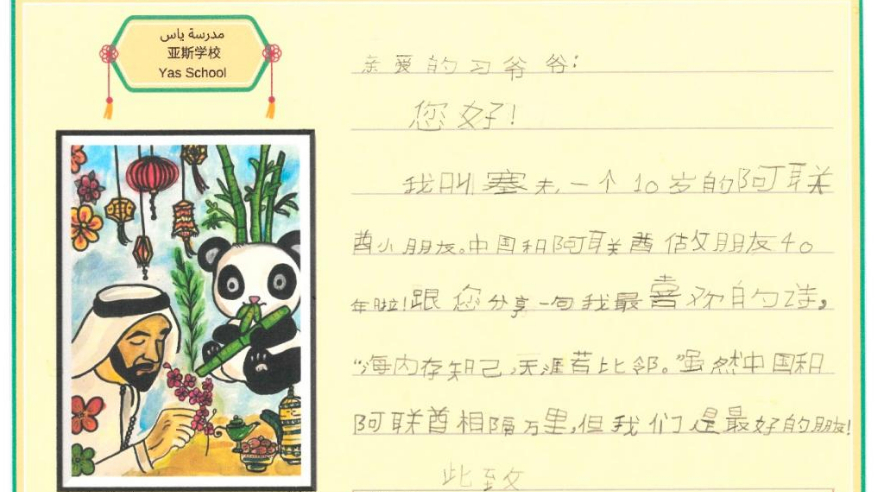 مدرسة ياس
亚斯学校
Yas School
亲爱的习爷爷：
您好！
我叫塞夫，一个10岁的阿联
酋小朋友。中国和阿联酋做朋友40
年啦！跟您分享一句我最喜欢的诗，
“海内存知己，天涯若比邻。”虽然中国和
阿联酋相隔万里，但我们是最好的朋友！
此致